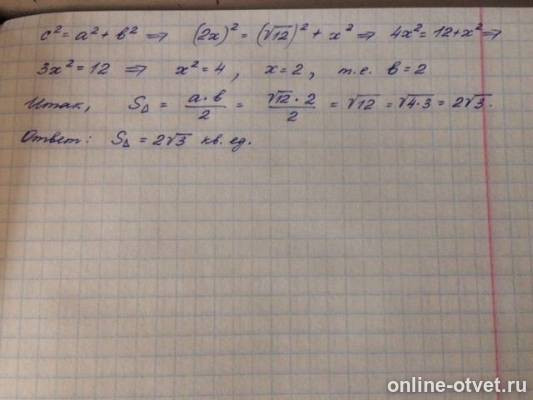 c² = a² + b² ⇒ (2x)² = (√12)² + x² ⇒ 4x² = 12 + x² ⇒
3x² = 12 ⇒ x² = 4, x = 2, т.е. b = 2
Итак, S△ = a·b/2 = √12·2/2 = √12 = √4·3 = 2√3.
Ответ: S△ = 2√3 кв. ед.
online-otvet.ru